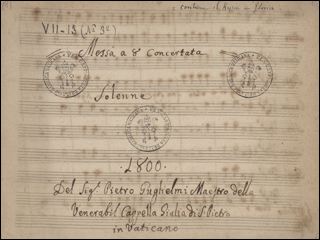 contiene il Kyrie e Gloria
VII-13 (N° 3°)
Messa a 8° Concertata
Solenne
.1800.
Del Sig.r Pietro Guglielmi Maestro della
Venerabil Cappella Giulia di S. Pietro
in Vaticano